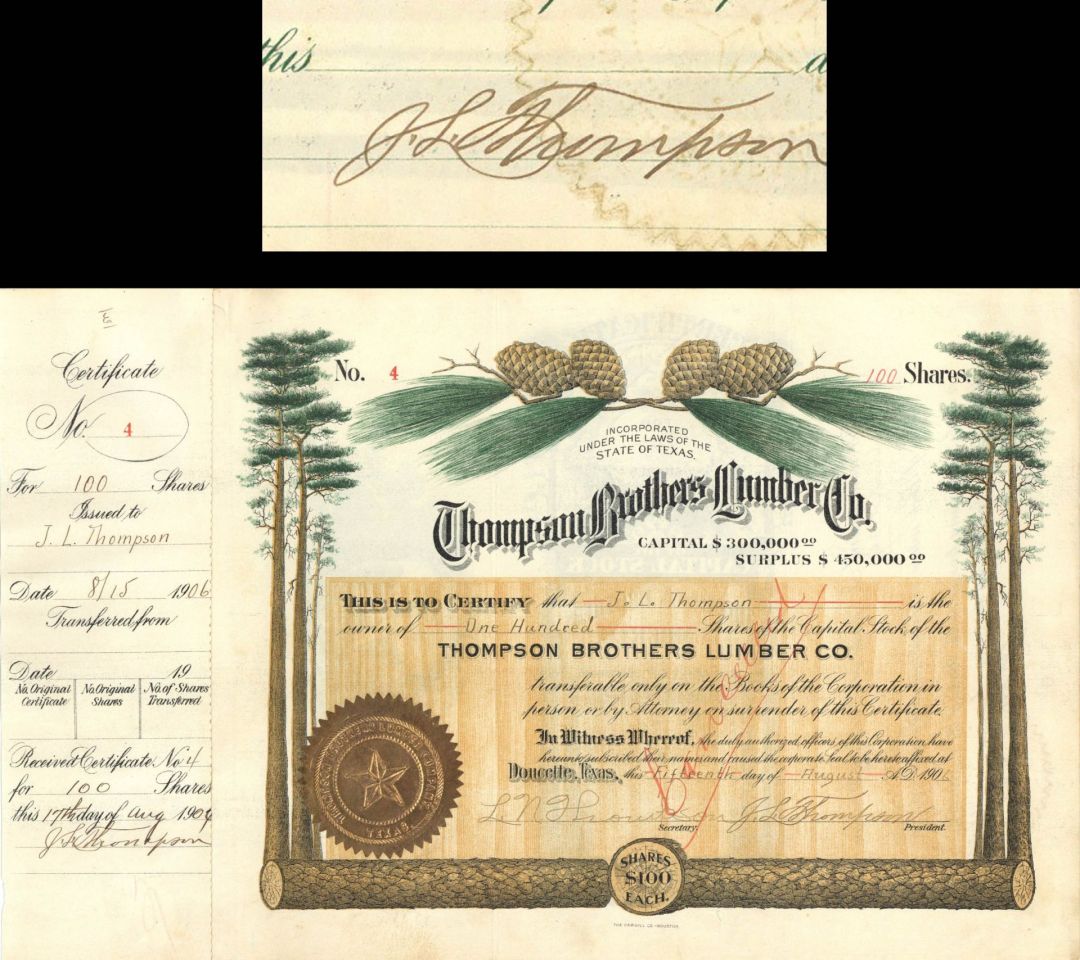 this d
J. L. Thompson
Certificate
No. 4
For 100 Shares
Issued to
J. L. Thompson
Date 8/15 1906
Transferred from
Date 19
No. Original Certificate No. Original Shares No. of Shares Transferred
Received Certificate No 4
for 100 Shares
this 17th day of Aug 1906
J. L. Thompson
No. 4 100 Shares.
INCORPORATED
UNDER THE LAWS OF THE
STATE OF TEXAS.
Thompson Brothers Lumber Co.
CAPITAL $ 300,000 00
SURPLUS $ 450,000 00
THIS IS TO CERTIFY that J. L. Thompson is the
owner of One Hundred Shares of the Capital Stock of the
THOMPSON BROTHERS LUMBER CO.
transferable only on the Books of the Corporation in
person or by Attorney on surrender of this Certificate.
In Witness Whereof, the duly authorized officers of this Corporation have
hereunto subscribed their names and caused the corporate Seal to be hereto affixed at
Doucette, Texas, this Fifteenth day of August A.D. 1906
J. L. Thompson
Secretary. President.
SHARES
$100
EACH.